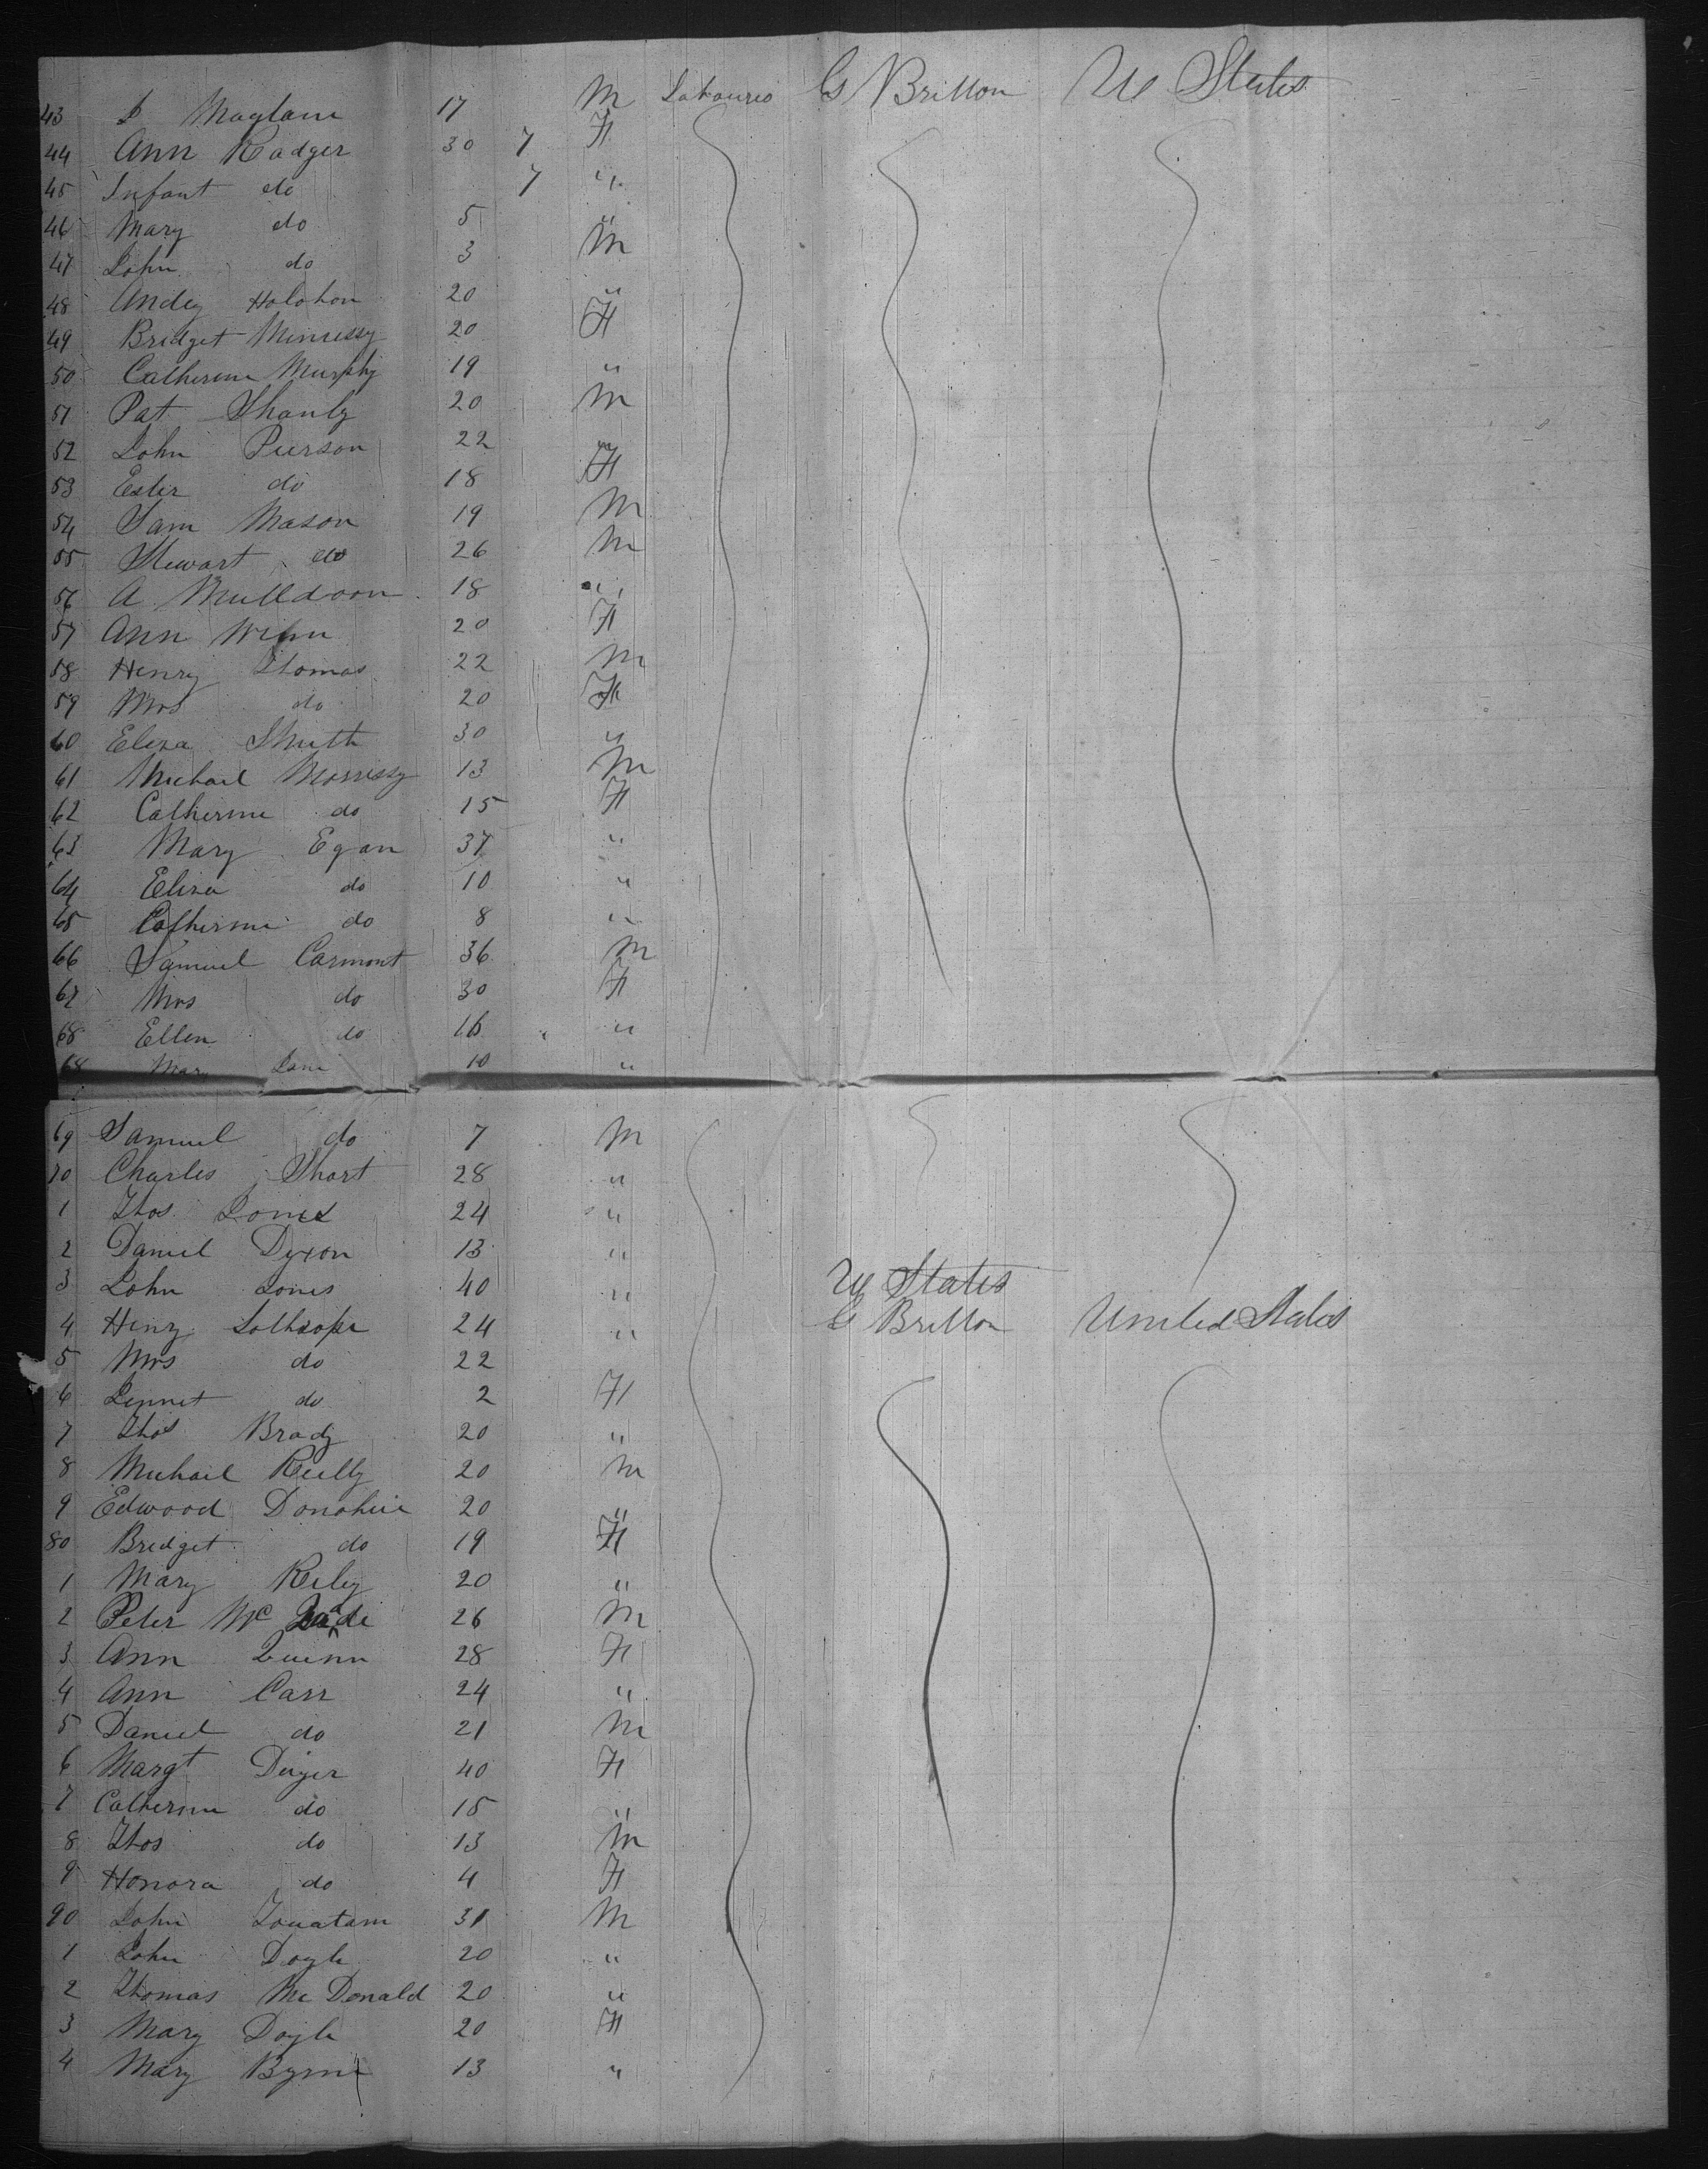 43 J Maglam 17 M Labourers G Britton U States
44 Ann Radger 30 7 F
45 Infant do 7 "
46 Mary do 5 "
47 John do 3 M
48 Andy Holohon 20 "
49 Bridget Minnessy 20 F
50 Catherine Murphy 19 "
51 Pat Shanly 20 M
52 John Pierson 22 "
53 Ester do 18 F
54 Sam Mason 19 M
55 Stewart do 26 M
56 A Mulldoon 18 "
57 Ann 20 F
58 Henry Thomas 22 M
59 Mrs do 20 F
60 Eliza Smith 30 "
61 Michael Morrissy 13 M
62 Catherine do 15 F
63 Mary Egan 37 "
64 Eliza do 10 "
65 Catherine do 8 "
66 Samuel Carmont 36 M
67 Mrs do 30 F
68 Ellen do 16 "
68 Mary Jane 10 "
69 Samuel do 7 M
70 Charles Short 28 "
1 Thos Jones 24 "
2 Daniel Dixon 13 "
3 John Jones 40 " U States
4 Henry Lolthrope 24 " G Britton United States
5 Mrs do 22
6 Jennet do 2 F
7 Thos Brady 20 "
8 Michael Reilly 20 M
9 Edwood Donohue 20 "
80 Bridget do 19 F
1 Mary Riley 20 "
2 Peter Mc 26 M
3 Ann Quinn 28 F
4 Ann Carr 24 "
5 Daniel do 21 M
6 Margt Dwyer 40 F
7 Catherine do 15 "
8 Thos do 13 M
9 Honora do 4 F
90 John 31 M
1 John Doyle 20 "
2 Thomas Mc Donald 20 "
3 Mary Doyle 20 F
4 Mary Byrne 13 "